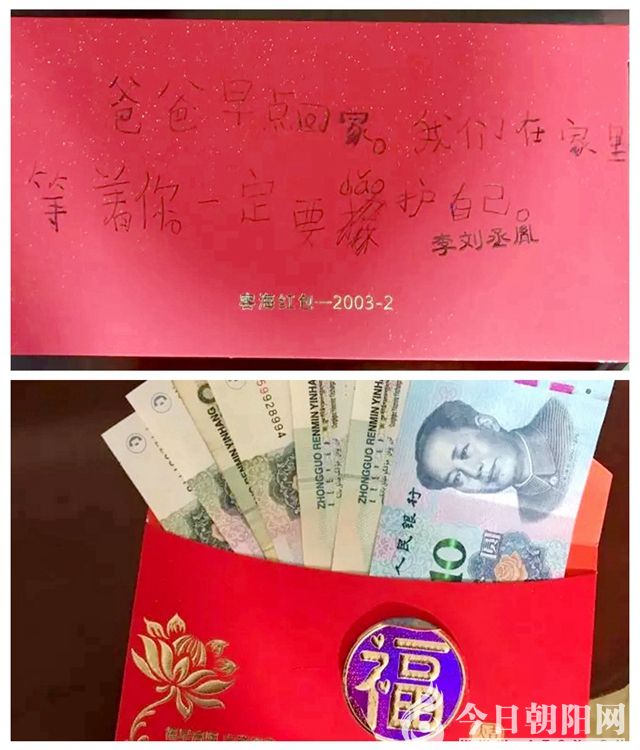 爸爸早点回家。我们在家里
等着你。一定要护自己。
李刘丞胤
红包—2003-2
RENMIN YINHANG
59928994
ZHONGGUO RENMIN YINHANG
ZHONGGUO RENMIN YINHANG
人民银行
10
圆
福
今日朝阳网